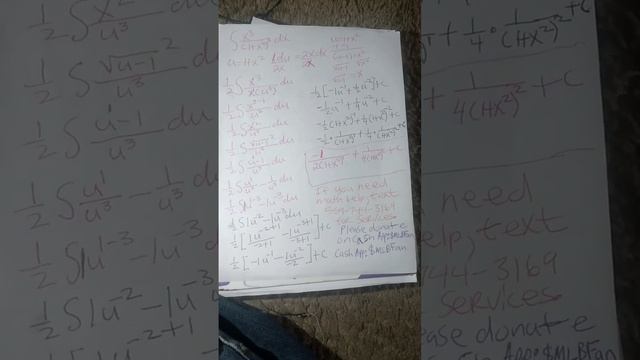 ∫ x³/(1+x²)³ dx
u=1+x² 1du/2x = 2xdx/2x
1/2 ∫ x³/x(u³) du
1/2 ∫ x³⁻¹/u³ du
1/2 ∫ x²/u³ du
1/2 ∫ √u-1²/u³ du
1/2 ∫ u-1/u³ du
1/2 ∫ u¹/u³ - 1/u³ du
1/2 ∫ 1u¹⁻³ - 1u⁻³ du
1/2 ∫ 1u⁻² - 1u⁻³ du
1/2 [1u⁻²⁺¹/-2+1 - 1u⁻³⁺¹/-3+1] + C
1/2 [-1u⁻¹ - 1u⁻²/-2] + C
u=1+x²
-1 -1
u-1 = x²
√u-1 = √x²
√u-1 = x
1/2 [-1u⁻¹ + 1/2 u⁻²] + C
-1/2 u⁻¹ + 1/4 u⁻² + C
-1/2 (1+x²)⁻¹ + 1/4 (1+x²)⁻² + C
-1/2 · 1/(1+x²)¹ + 1/4 · 1/(1+x²)² + C
-1/2(1+x²)¹ + 1/4(1+x²)² + C
If you need
math help, text
for services
Please donate
on Cash App: $MLBFan
Cash App: $MLBFan